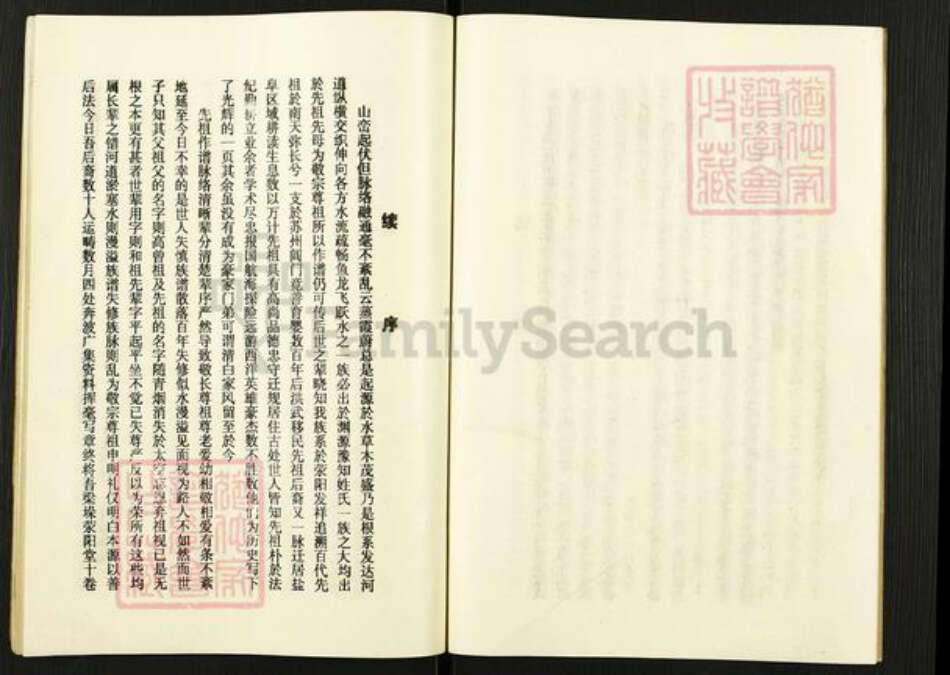 猶他家
譜學會
收藏
续序
山峦起伏但脉络融通毫不紊乱云蒸霞蔚总是起源於水草木茂盛乃是根系发达河
道纵横交织伸向各方水流疏畅鱼龙飞跃水之一族必出於渊源豫知姓氏一族之大均出
於先祖先母为敬宗尊祖所以作谱仍可传后世之辈晓知我族系於荥阳发祥追溯百代先
祖於南天弥长兮一支於苏州阊门竞善育婴数百年后洪武移民先祖后裔又一脉迁居盐
阜区域耕渎生息数以万计先祖具有高尚品德忠守迁规居住古处世人皆知先祖朴於法
纪勤 立业余者学术尽忠报国航海探险远游西洋英雄豪杰数不胜数他们为历史写下
了光辉的一页其余虽没有成为豪家门弟可谓清白家风留至於今
先祖作谱脉络清晰辈分清楚辈序严然导致敬长尊祖尊老爱幼相敬相爱有条不紊
地延至今日不幸的是世人失慎族谱散落百年失修似水漫溢见面视为路人不如然而世
子只知其父祖父的名字则高曾祖及先祖的名字随青烟消失於太 弃祖视已是无
根之本更有甚者世辈用字则和祖先辈字平起平坐不觉已失尊严反以为荣所有这些均
属长辈之错河道淤塞水则漫溢族谱失修族脉则乱为敬宗尊祖申明礼仪明白本源以善
后法今日吾后裔数十人运畴数月四处奔波广集资料挥毫写章终将吾梁垛荥阳堂十卷
FamilySearch